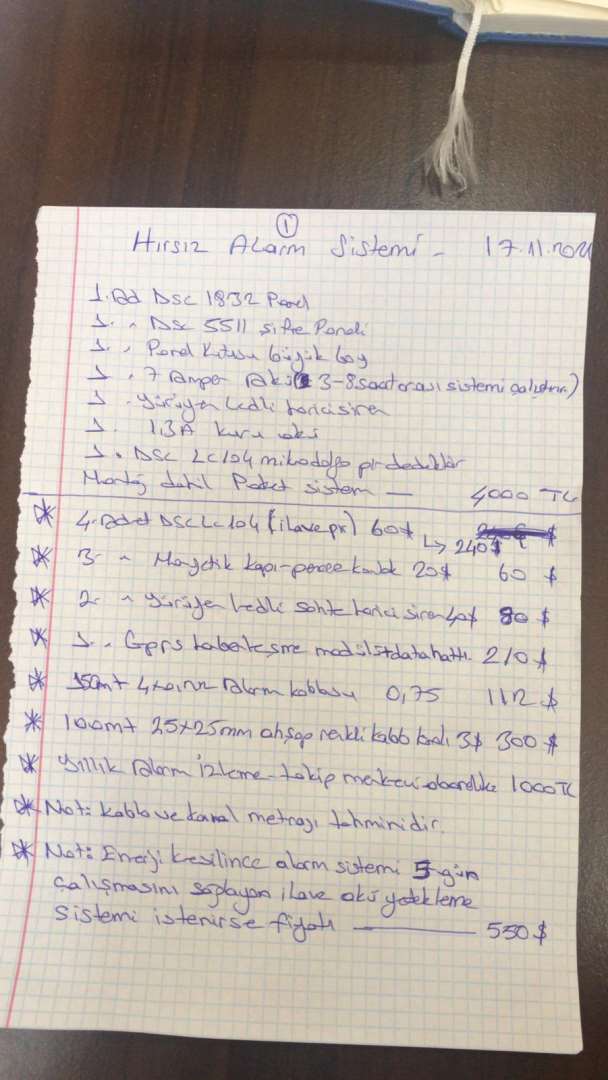 1
Hırsız Alarm Sistemi - 17.11.2021
1. Ad DSC 1832 Panel
1. " DSC 5511 şifre Paneli
1. " Panel Kutusu büyük boy
1. " 7 Amper Akü 3-8 saat arası sistemi çalıştırır.)
1. " yürüyen ledli harici siren
1. 1.3A kuru akü
1. " DSC LC104 mikrodalga pır dedektör
Montaj dahil Paket sistem — 4000 TL
* 4. Adet DSC LC 104 (ilave pır) 60$
↳ 240$
* 3 - " Manyetik kapı-pencere kontak 20$ 60 $
* 2 - " yürüyen ledli sahte harici siren 40$ 80 $
* 1. " Gprs haberleşme modülü+data hattı. 210 $
* 150mt 4x0,22 Alarm kablosu 0,75 112 $
* 100mt 25x25mm ahşap renkli kablo kanalı 3$ 300 $
* yıllık Alarm izleme-takip merkezi abonelik 1000 TL
* Not: Kablo ve kanal metrajı tahminidir.
* Not: Enerji kesilince alarm sistemi 5 gün
çalışmasını sağlayan ilave akü yedekleme
sistemi istenirse fiyatı — 550 $